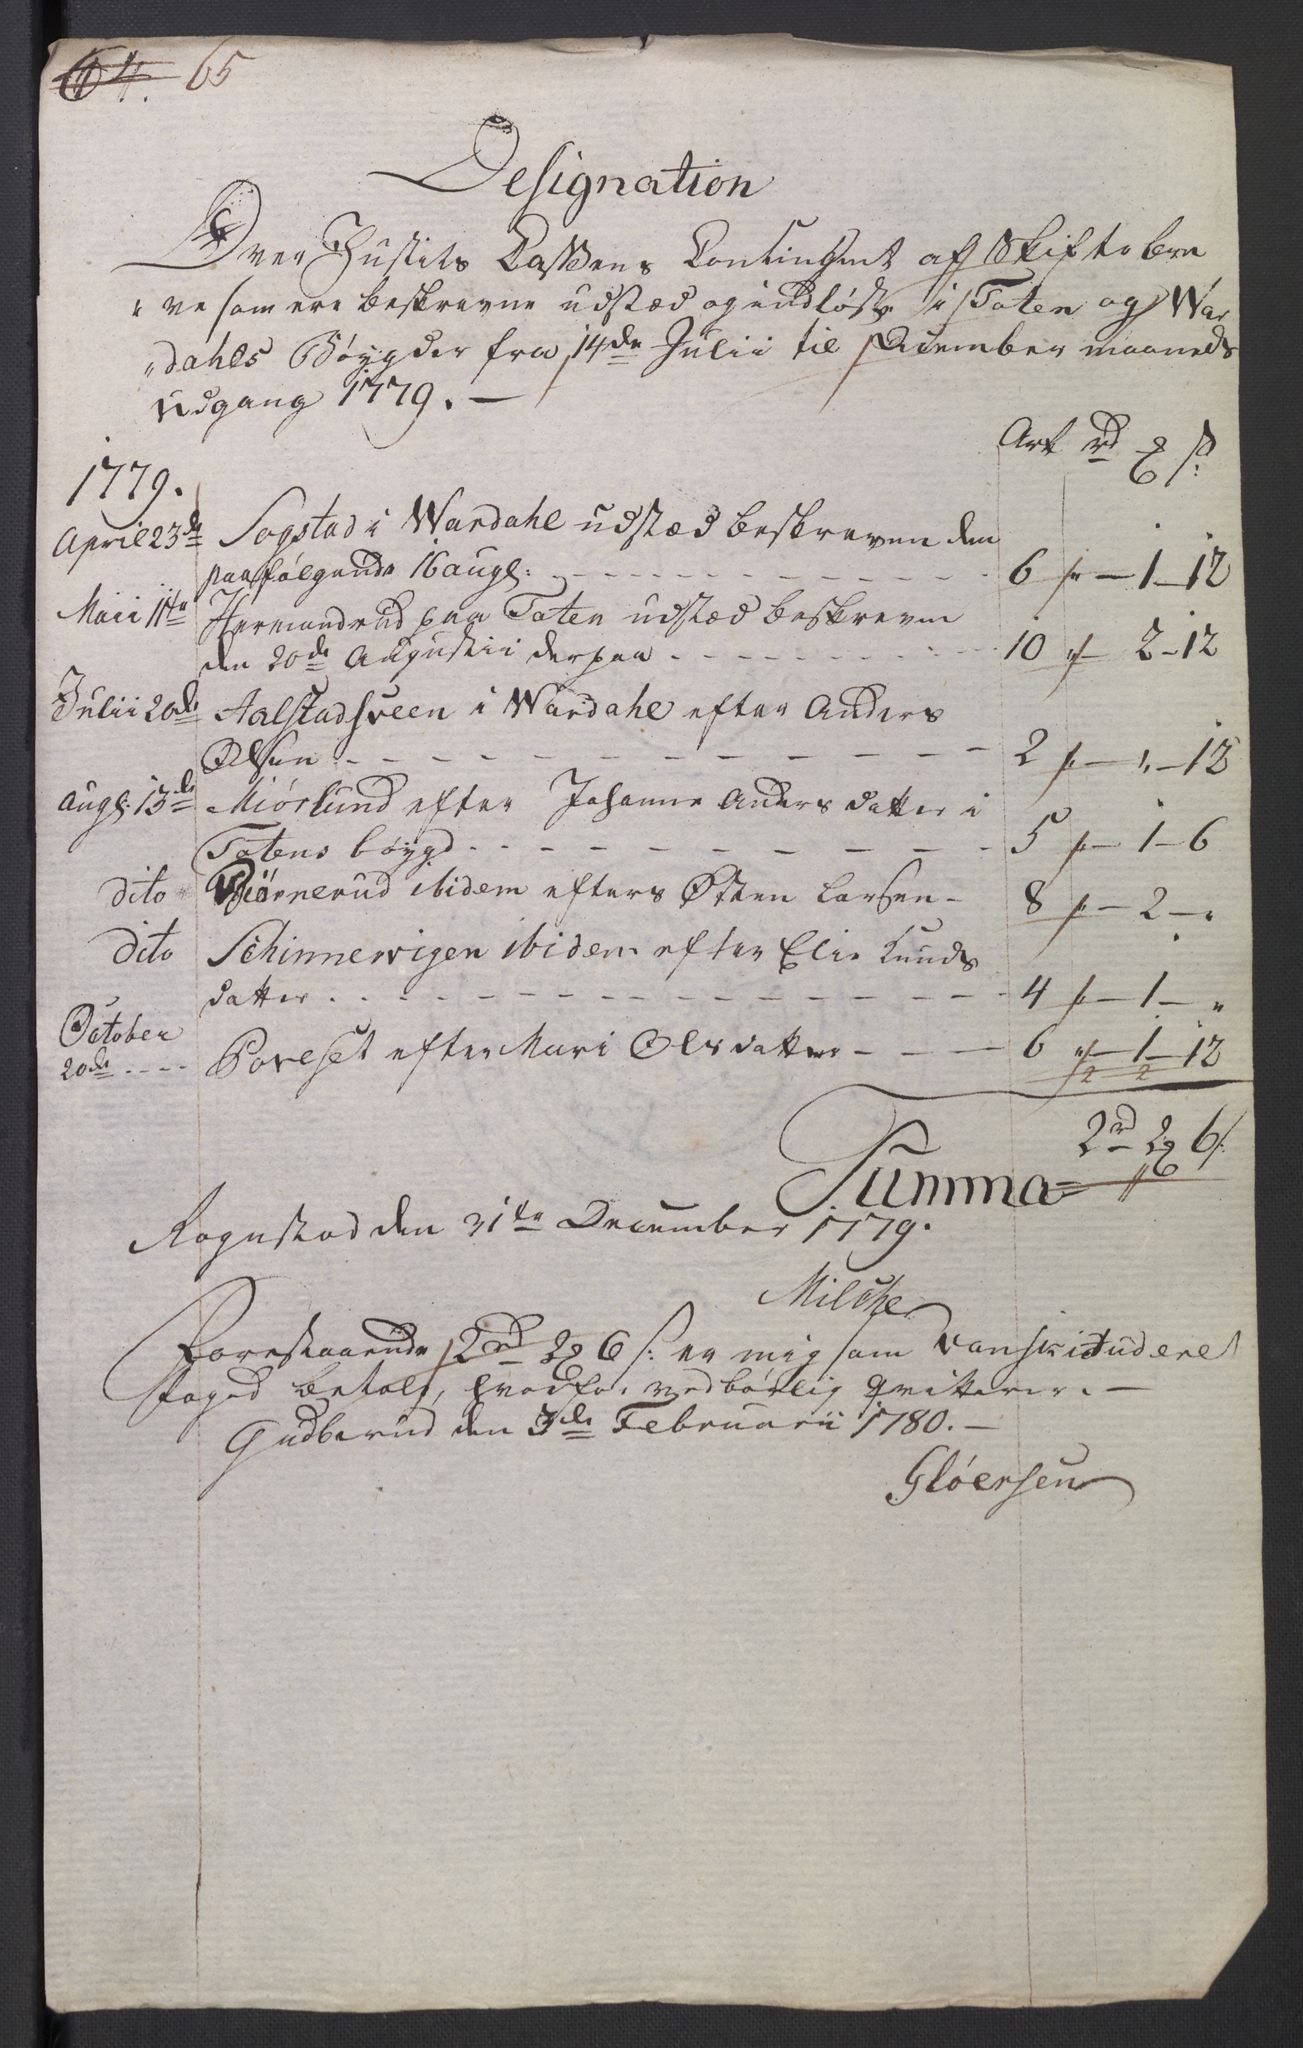 64. 65
Designation
Over Justits Cassens Contingent af Skifte bre
"ve som ere beskrevne udstæd og indløst i Toten og War
"dahls Bøygder fra 14de Julii til December maaneds
Udgang 1779. —
Ark rd ß:
1779.
April 23de Sogstad i Wardahl udstæd beskreven den
paafølgende 16 aug: - - - 6 " — 1 — 12
Maii 11te Hermandrud paa Toten udstæd beskreven
den 20de Augustii derpaa - - - 10 " — 2 — 12
Julii 20de Aalstadsveen i Wardahl efter Anders
Olsen - - - 2 " — " — 12
Aug: 13de Miørlund efter Johanne Anders datter i
Totens bøygd - - - 5 " — 1 — 6
dito Biørnerud ibidem efter Østen Larsen — 8 " — 2 — "
dito Schinnervigen ibidem efter Elie Knuds
datter - - - 4 " — 1 — "
October
20de - - Poreset efter Mari Olsdatter — — — 6 " — 1 — 12
2 2
Summa 2rd 2 6ß:
Rognstad den 31te December 1779.
Milche
Forestaaende 2rd 2 6 ß: er mig som Constitueret
foged betalt, hvorfor vedbørlig qvitterer. —
Gudberud den 3de Februarii 1780. —
Gløersen